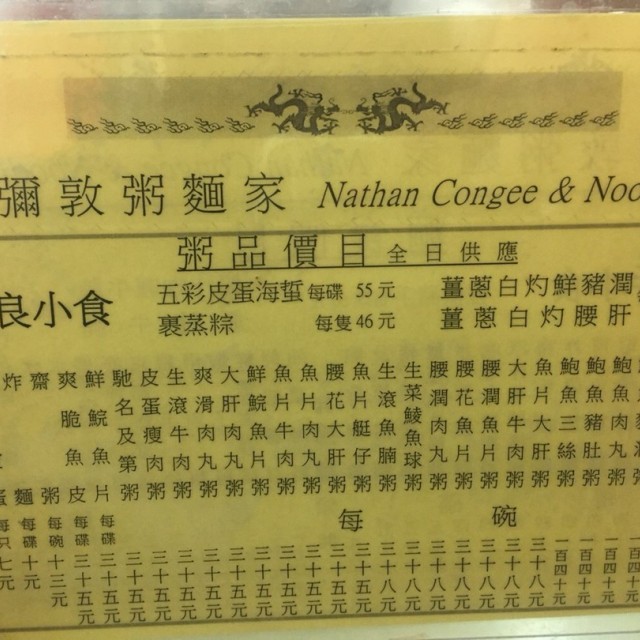 彌敦粥麵家 Nathan Congee &
粥品價目 全日供應
良小食
五彩皮蛋海蜇 每碟 55 元
裹蒸粽 每隻 46 元
薑蔥白灼鮮豬潤
薑蔥白灼腰肝
炸麵 每碟十元
齋粥 每碗十三元
爽脆魚皮 每碟三十五元
鮮鯇魚片 每碟三十五元
每碗
馳名及第粥 三十五元
皮蛋瘦肉粥 三十五元
生滾牛肉粥 三十五元
爽滑肉丸粥 三十五元
大肝肉丸粥 三十五元
鮮鯇魚片粥 三十五元
魚片牛肉粥 三十五元
魚片肉丸粥 三十五元
腰花大肝粥 三十五元
魚片艇仔粥 三十八元
生滾魚腩粥 三十八元
生菜鯪魚球粥 三十八元
腰潤肉丸粥 三十八元
腰花肉片粥 三十八元
腰潤魚片粥 三十八元
大肝牛肉粥 三十八元
魚片大肝粥 三十八元
鮑魚三絲粥 一百四十元
鮑魚豬肚粥 一百四十元
鮑魚肉丸粥 一百四十元